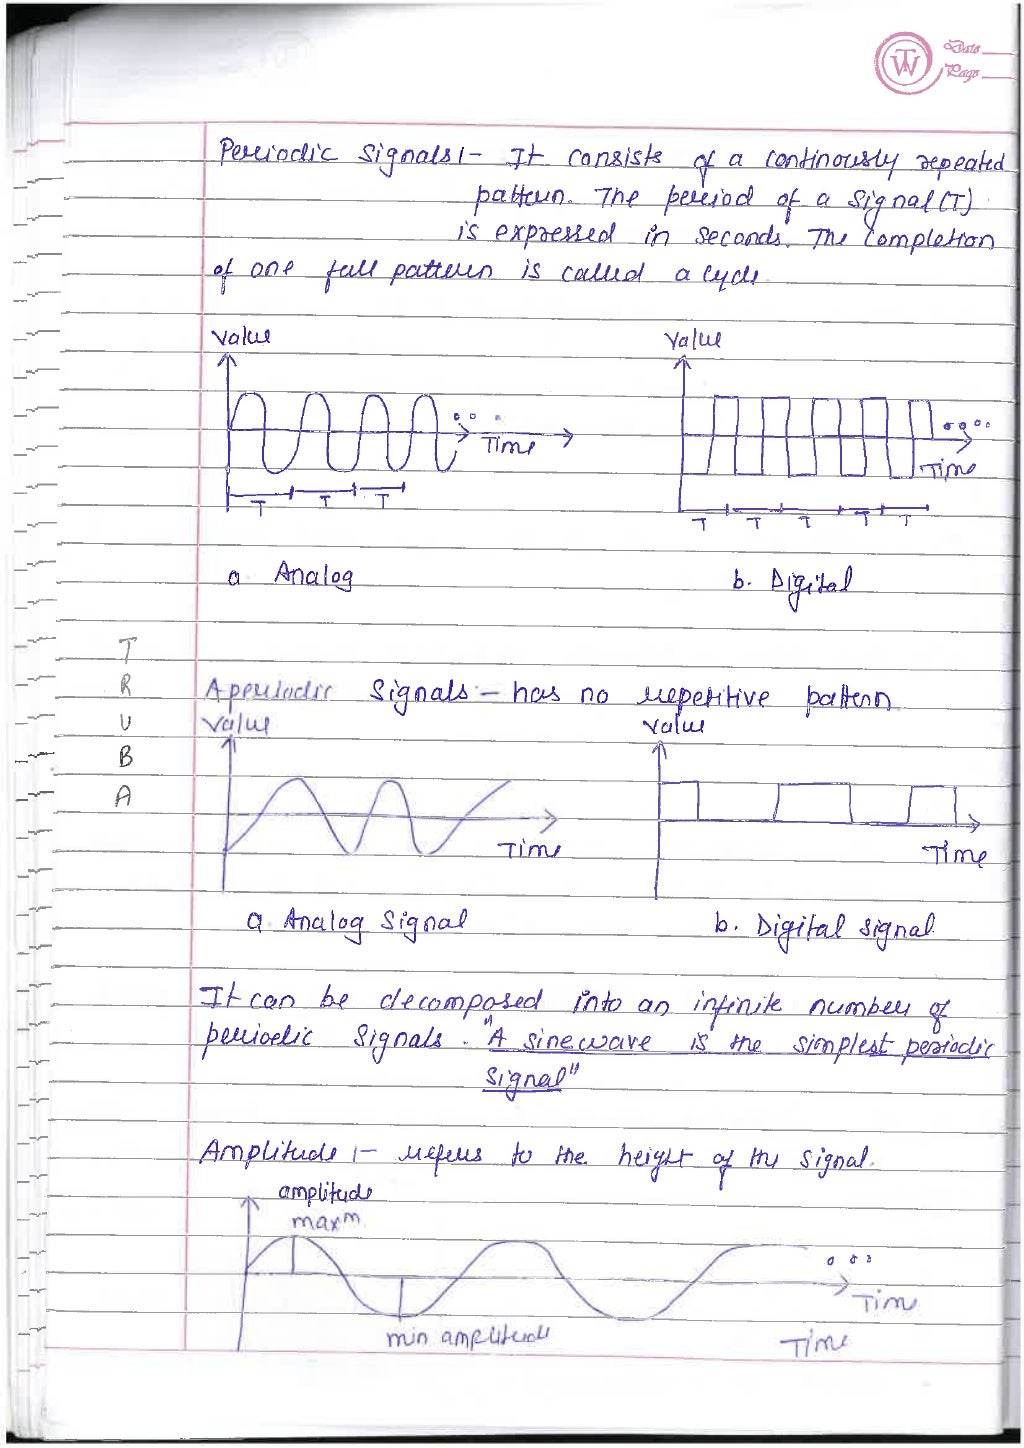 TW
Date
Page
Periodic Signals :- It consists of a continously repeated
pattern. The period of a signal (T)
is expressed in seconds. The completion
of one full pattern is called a cycle.
Value
Value
Time
Time
T T T
T T T T T
a. Analog
b. Digital
T
R
U
B
A
Aperiodic Signals :- has no repetitive pattern
Value
Value
Time
Time
a. Analog Signal
b. Digital signal
It can be decomposed into an infinite number of
periodic Signals. "A sinewave is the simplest periodic
signal"
Amplitude :- refers to the height of the signal.
amplitude
maxᵐ
Time
min amplitude
Time